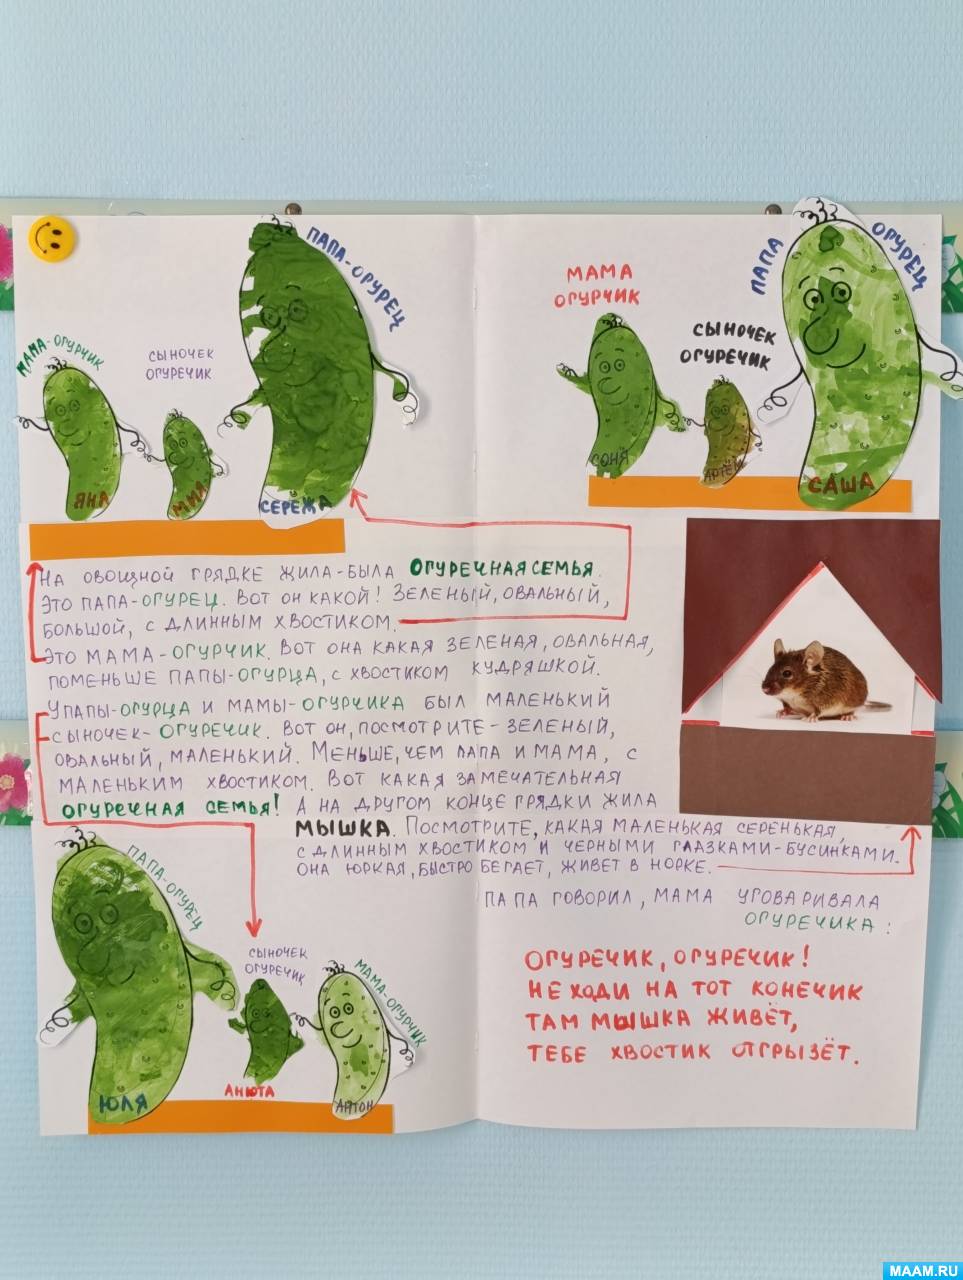 ПАПА-ОГУРЕЦ
МАМА-ОГУРЧИК
СЫНОЧЕК
ОГУРЕЧИК
ЯНА
МИЛА
СЕРЁЖА
МАМА
ОГУРЧИК
СЫНОЧЕК
ОГУРЕЧИК
ПАПА
ОГУРЕЦ
СОНЯ
АРТЁМ
САША
НА ОВОЩНОЙ ГРЯДКЕ ЖИЛА-БЫЛА ОГУРЕЧНАЯ СЕМЬЯ.
ЭТО ПАПА-ОГУРЕЦ. ВОТ ОН КАКОЙ! ЗЕЛЕНЫЙ, ОВАЛЬНЫЙ,
БОЛЬШОЙ, С ДЛИННЫМ ХВОСТИКОМ.
ЭТО МАМА-ОГУРЧИК. ВОТ ОНА КАКАЯ ЗЕЛЕНАЯ, ОВАЛЬНАЯ,
ПОМЕНЬШЕ ПАПЫ-ОГУРЦА, С ХВОСТИКОМ КУДРЯШКОЙ.
У ПАПЫ-ОГУРЦА И МАМЫ-ОГУРЧИКА БЫЛ МАЛЕНЬКИЙ
СЫНОЧЕК-ОГУРЕЧИК. ВОТ ОН, ПОСМОТРИТЕ-ЗЕЛЕНЫЙ,
ОВАЛЬНЫЙ, МАЛЕНЬКИЙ. МЕНЬШЕ, ЧЕМ ПАПА И МАМА, С
МАЛЕНЬКИМ ХВОСТИКОМ. ВОТ КАКАЯ ЗАМЕЧАТЕЛЬНАЯ
ОГУРЕЧНАЯ СЕМЬЯ! А НА ДРУГОМ КОНЦЕ ГРЯДКИ ЖИЛА
МЫШКА. ПОСМОТРИТЕ, КАКАЯ МАЛЕНЬКАЯ СЕРЕНЬКАЯ,
С ДЛИННЫМ ХВОСТИКОМ И ЧЕРНЫМИ ГЛАЗКАМИ-БУСИНКАМИ.
ОНА ЮРКАЯ, БЫСТРО БЕГАЕТ, ЖИВЕТ В НОРКЕ.
ПАПА ГОВОРИЛ, МАМА УГОВАРИВАЛА
ОГУРЕЧИКА:
ОГУРЕЧИК, ОГУРЕЧИК!
НЕ ХОДИ НА ТОТ КОНЕЧИК
ТАМ МЫШКА ЖИВЁТ,
ТЕБЕ ХВОСТИК ОТГРЫЗЁТ.
ПАПА-ОГУРЕЦ
СЫНОЧЕК
ОГУРЕЧИК
МАМА-ОГУРЧИК
ЮЛЯ
АНЮТА
АНТОН
MAAM.RU